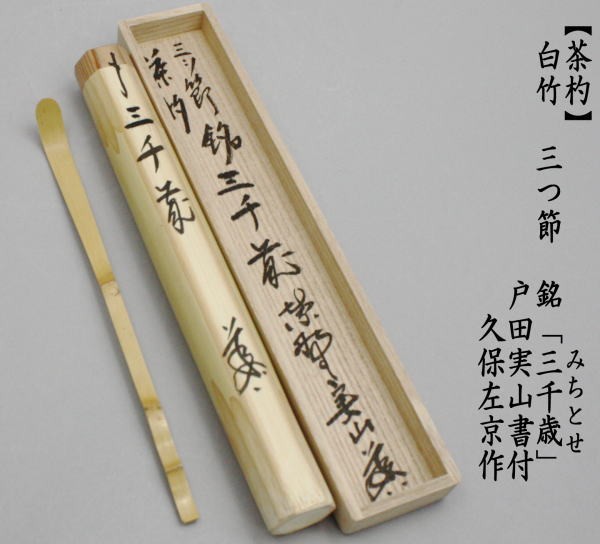 【茶杓】
白竹 三つ節 銘「三千歳」
みちとせ
戸田実山書付
久保左京作
三ツ節
茶杓
銘三千歳
紫野実山
三千歳